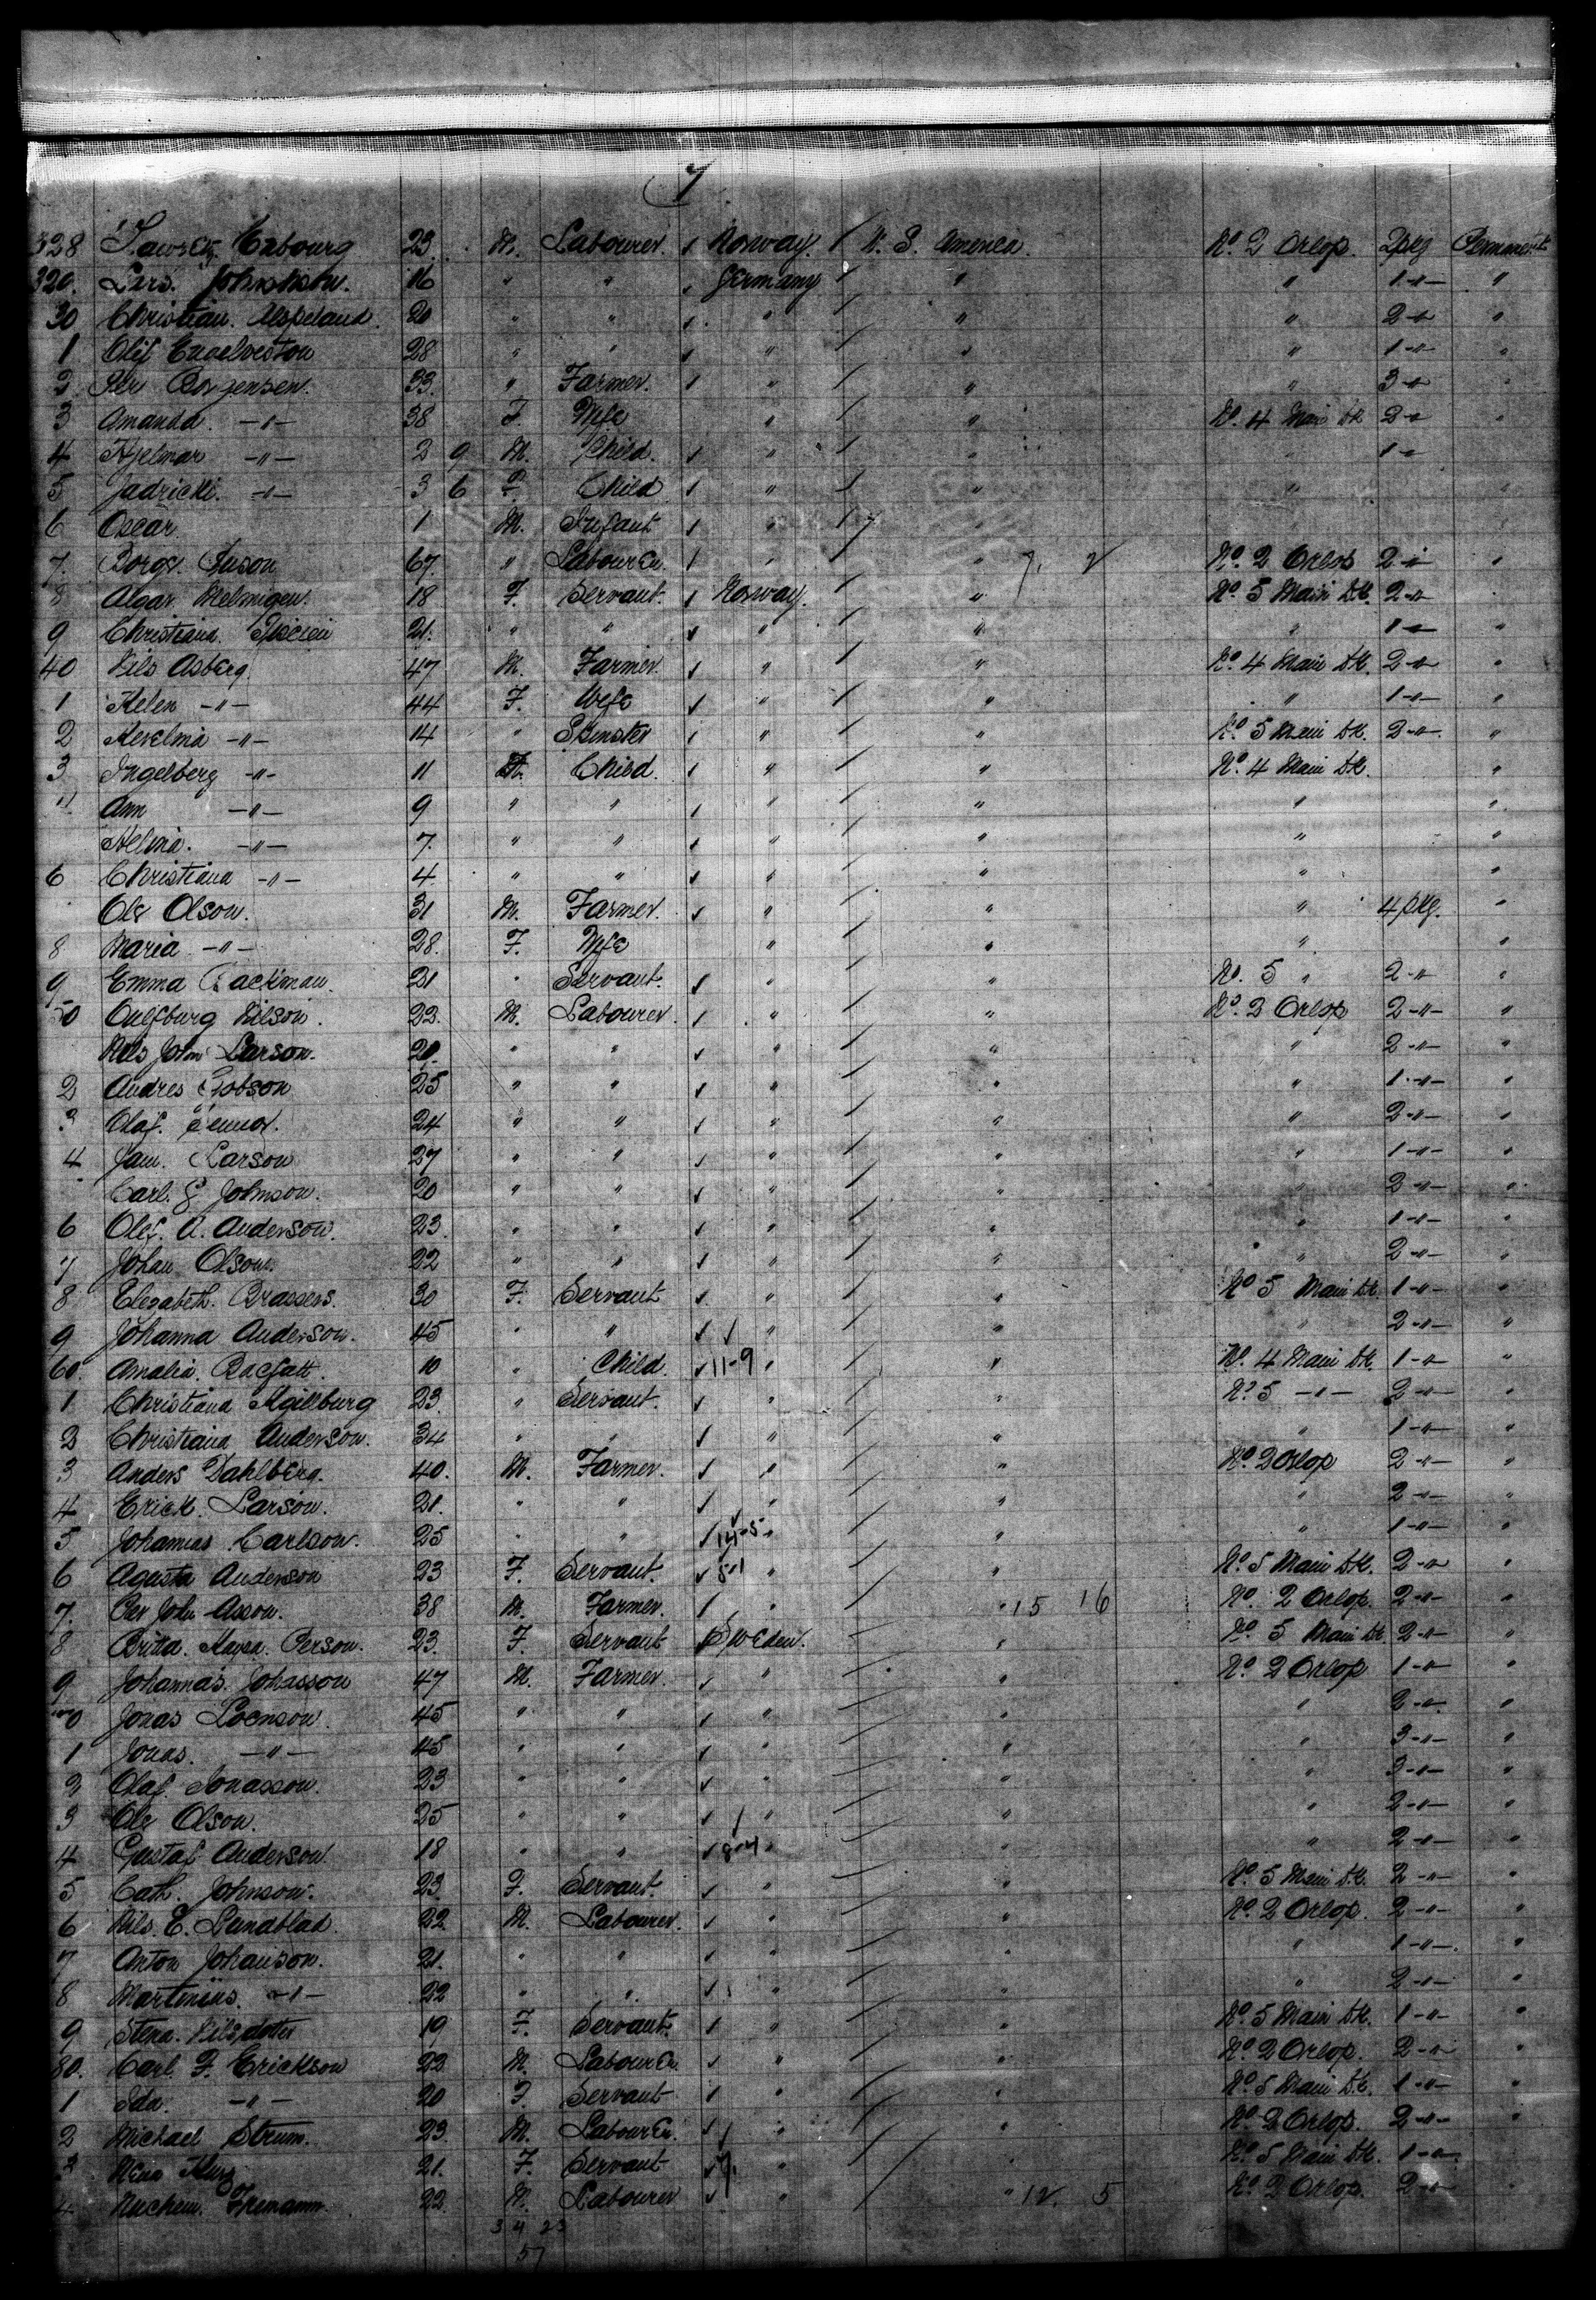 7
328 Cabourg 23 M. Labourer Norway U. S. America No 2 Orlop. 2pkg Permanent
320. Lars. Johnson. 16 " " Germany " " 1 -"- "
30 Christian. 20 " " " " " 2 -"- "
1 Olif Engelveston 28 " " " " " 1 -"- "
2 Per Borgensen. 33. " Farmer. " " " 3 -"-
3 Amanda. -"- 38 F. Wife " " No. 4 Main Dk 2 -"- "
4 Hjelmar -"- 2 9 M. Child. " " " 1 -"-
5 -"- 3 6 F. Child " " "
6 Oscar 1 M. Infant " "
7. 67. " Labourer. " " 7. 2 No. 2 Orlop 2 -"- "
8 Algar. 18 F. Servant. Norway. " No. 5 Main Dk. 2 -"-
9 Christiana. 21. " " " " " 1 -"- "
40 Nils Asberg. 47 M. Farmer. " " No. 4 Main Dk. 2 -"- "
1 Helen -"- 44 F. Wife " " " 1 -"- "
2 -"- 14 " Spinster " " No. 5 Main Dk. 2 -"- "
3 Ingelberg -"- 11 Child. " " No. 4 Main Dk. "
4 Ann -"- 9 " " " " " "
Helma. -"- 7. " " " " " "
6 Christiana -"- 4. " " " " " "
Ole Olson. 31 M. Farmer. " " " 4 pkg. "
8 Maria -"- 28. F. Wife " " " "
9 Emma Backman. 21 " Servant. " " No. 5 " 2 -"- "
50 Nilson. 22. M. Labourer. " " No. 2 Orlop 2 -"- "
Nils John Larson. 20. " " " " " 2 -"- "
2 Andres 25 " " " " " 1 -"- "
3 Olaf. 24 " " " " " 2 -"- "
4 Larson 27 " " " " " 1 -"- "
Carl. Johnson. 20 " " " " " 2 -"- "
6 Olef. A. Anderson. 23. " " " " " 1 -"- "
7 Johan Olson. 22 " " " " " 2 -"- "
8 Elezabeth. 30 F. Servant " " No 5 Main Dk. 1 -"- "
9 Johanna Anderson. 45 " " " " " 2 -"- "
60. Amalia. 10 " Child. 11-9 " " No. 4 Main Dk. 1 -"- "
1 Christiana 23. " Servant. " " No. 5 -"- 2 -"- "
2 Christiana Anderson. 34 " " " " " 1 -"- "
3 Anders Dahlberg. 40. M. Farmer. " " No. 2 Orlop 2 -"- "
4 Erick. Larson. 21. " " " " " 2 -"- "
5 Carlson. 25 " " " " 1 -"- "
6 Agusta Anderson 23 F. Servant. " " No. 5 Main Dk. 2 -"- "
7. Per John 38 M. Farmer. " " 15 16 No. 2 Orlop. 2 -"- "
8 Brita. Person. 23. F. Servant Sweden. " No. 5 Main Dk 2 -"- "
9 Johannas. Johasson 47 M. Farmer. " " No. 2 Orlop 1 -"- "
70 Jonas 45 " " " " " 2 -"- "
1 Jonas. -"- 45 " " " " " 3 -"- "
2 Olaf. Jonasson. 23 " " " " " 3 -"- "
3 Ole Olson. 25 " " " " " 2 -"- "
4 Gustaf Anderson. 18 " " " " " 2 -"- "
5 Cath. Johnson. 23. F. Servant. " " No. 5 Main Dk. 2 -"- "
6 Nils. E. Lundblad. 22. M. Labourer. " " No. 2 Orlop. 2 -"- "
7 Anton Johanson. 21. " " " " " 1 -"- "
8 Martinius. -"- 22 " " " " " 2 -"- "
9 Stena. Nilsdotter 19 F. Servant. " " No. 5 Main Dk. 1 -"- "
80. Carl. F. Erickson 22 M. Labourer. " " No. 2 Orlop. 2 -"- "
1 Ida. -"- 20 F. Servant " " No. 5 Main Dk. 1 -"- "
2 Michael Strum. 23. M. Labourer. " " No. 2 Orlop. 2 -"- "
3 21. F. Servant " " No. 5 Main Dk. 1 -"- "
4 22. M. Labourer " " 12. 5 No. 2 Orlop. 2 -"- "
34 23
57